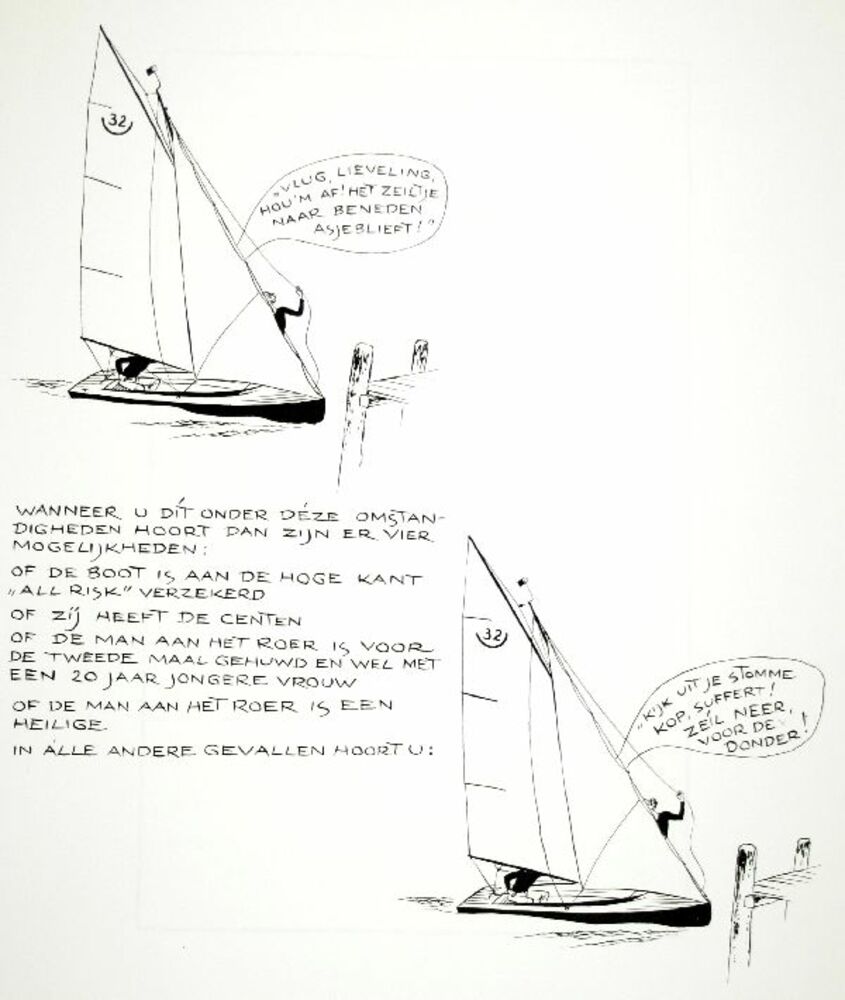 32
„VLUG, LIEVELING,
HOU'M AF! HET ZEILTJE
NAAR BENEDEN
ASJEBLIEFT!"
WANNEER U DÍT ONDER DÉZE OMSTAN-
DIGHEDEN HOORT DAN ZIJN ER VIER
MOGELIJKHEDEN:
OF DE BOOT IS AAN DE HOGE KANT
„ALL RISK" VERZEKERD
OF ZÍJ HEEFT DE CENTEN
OF DE MAN AAN HET ROER IS VOOR
DE TWEEDE MAAL GEHUWD EN WEL MET
EEN 20 JAAR JONGERE VROUW
OF DE MAN AAN HET ROER IS EEN
HEILIGE.
IN ÁLLE ANDERE GEVALLEN HOORT U:
32
„KIJK UIT JE STOMME
KOP, SUFFERT!
ZEIL NEER,
VOOR DE
DONDER!